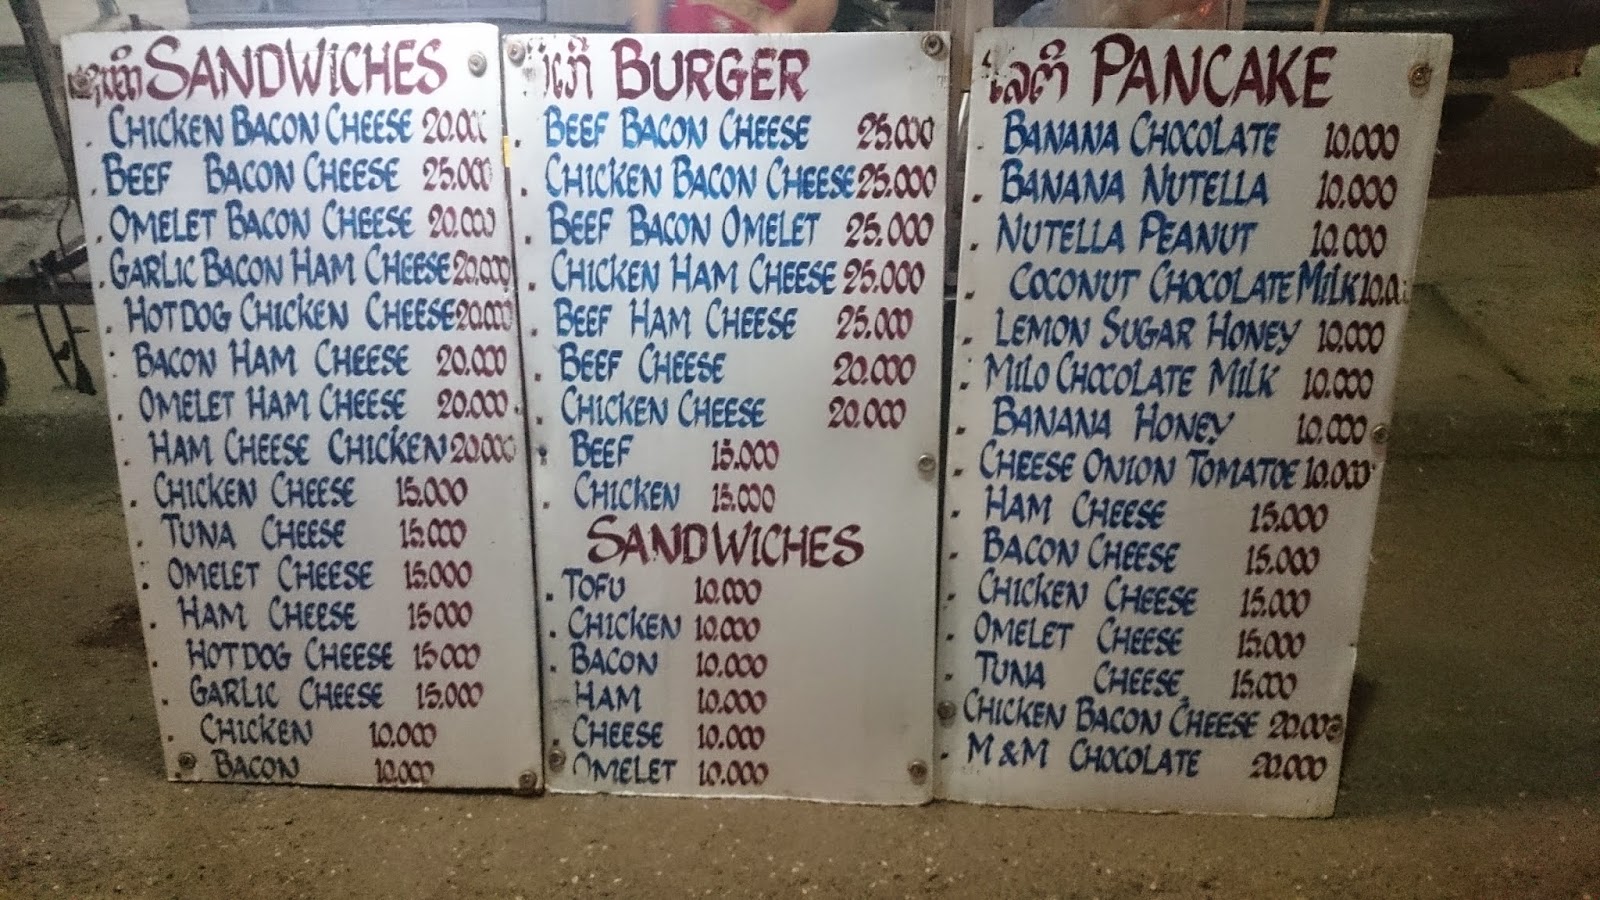 SANDWICHES
CHICKEN BACON CHEESE 20.000
BEEF BACON CHEESE 25.000
OMELET BACON CHEESE 20.000
GARLIC BACON HAM CHEESE 20.000
HOTDOG CHICKEN CHEESE 20.000
BACON HAM CHEESE 20.000
OMELET HAM CHEESE 20.000
HAM CHEESE CHICKEN 20.000
CHICKEN CHEESE 15.000
TUNA CHEESE 15.000
OMELET CHEESE 15.000
HAM CHEESE 15000
HOTDOG CHEESE 15000
GARLIC CHEESE 15.000
CHICKEN 10.000
BACON 10.000
BURGER
BEEF BACON CHEESE 25.000
CHICKEN BACON CHEESE 25.000
BEEF BACON OMELET 25.000
CHICKEN HAM CHEESE 25.000
BEEF HAM CHEESE 25.000
BEEF CHEESE 20.000
CHICKEN CHEESE 20.000
BEEF 15.000
CHICKEN 15.000
SANDWICHES
TOFU 10.000
CHICKEN 10.000
BACON 10.000
HAM 10.000
CHEESE 10.000
OMELET 10.000
PANCAKE
BANANA CHOCOLATE 10.000
BANANA NUTELLA 10.000
NUTELLA PEANUT 10.000
COCONUT CHOCOLATE MILK 10.0
LEMON SUGAR HONEY 10.000
MILO CHOCOLATE MILK 10.000
BANANA HONEY 10.000
CHEESE ONION TOMATOE 10.000
HAM CHEESE 15.000
BACON CHEESE 15.000
CHICKEN CHEESE 15.000
OMELET CHEESE 15.000
TUNA CHEESE 15.000
CHICKEN BACON CHEESE 20.000
M&M CHOCOLATE 20.000